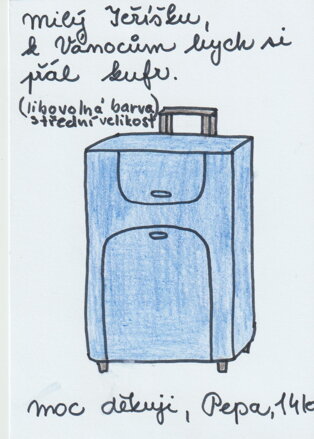 milý Ježíšku,
k Vánocům bych si
přál kufr.
(libovolná barva)
střední velikost
moc děkuji, Pepa, 14 let